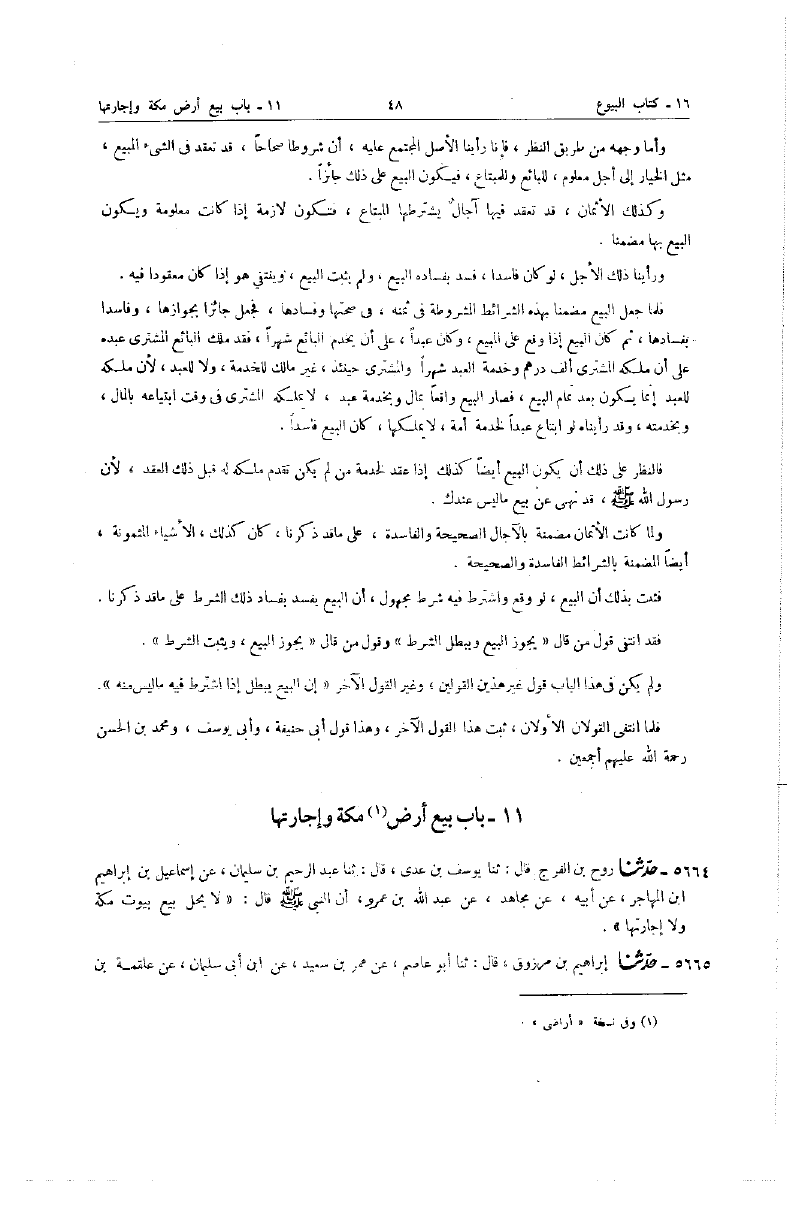 ١٦ ـ كتاب البيوع ٤٨ ١١ ـ باب بيع أرض مكة وإجارتها
وأما وجهه من طريق النظر ، فإنا رأينا الأصل المجتمع عليه ، أن شروطا صحاحاً ، قد تعقد فى الشىء المبيع ،
مثل الخيار إلى أجل معلوم ، للبائع وللمبتاع ، فيكون البيع على ذلك جائزاً .
وكذلك الأثمان ، قد تعقد فيها آجالٌ يشترطها المبتاع ، فتكون لازمة إذا كانت معلومة ويكون
البيع بها مضمنا .
ورأينا ذلك الأجل ، لو كان فاسدا ، فسد بفساده البيع ، ولم يثبت البيع ، وينتفي هو إذا كان معقودا فيه .
فلما جعل البيع مضمنا بهذه الشرائط المشروطة فى ثمنه ، فى صحتها وفسادها ، فجعل جائزا بجوازها ، وفاسدا
بفسادها ، ثم كان البيع إذا وقع على المبيع ، وكان عبداً ، على أن يخدم البائع شهراً ، فقد ملك البائع المشترى عبده
على أن ملكه المشترى ألف درهم وخدمة العبد شهراً والمشترى حينئذ ، غير مالك للخدمة ، ولا للعبد ، لأن ملكه
للعبد إنما يكون بعد تمام البيع ، فصار البيع واقعاً بمال وبخدمة عبد ، لا يملكه المشترى فى وقت ابتياعه بالمال ،
وبخدمته ، وقد رأيناه لو ابتاع عبداً لخدمة أمة ، لا يملكها ، كان البيع فاسداً .
فالنظر على ذلك أن يكون البيع أيضاً كذلك إذا عقد لخدمة من لم يكن تقدم ملكه له قبل ذلك العقد ، لأن
رسول الله ﷺ ، قد نهى عن بيع ماليس عندك .
ولما كانت الأثمان مضمنة بالآجال الصحيحة والفاسدة ، على ماقد ذكرنا ، كان كذلك ، الأشياء المثمونة ،
أيضاً المضمنة بالشرائط الفاسدة والصحيحة .
فثبت بذلك أن البيع ، لو وقع واشترط فيه شرط مجهول ، أن البيع يفسد بفساد ذلك الشرط على ماقد ذكرنا .
فقد انتفى قول من قال « يجوز البيع ويبطل الشرط » وقول من قال « يجوز البيع ، ويثبت الشرط » .
ولم يكن فى هذا الباب قول غير هذين القولين ، وغير القول الآخر « إن البيع يبطل إذا اشترط فيه ماليس منه ».
فلما انتفى القولان الأولان ، ثبت هذا القول الآخر ، وهذا قول أبى حنيفة ، وأبى يوسف ، ومحمد بن الحسن
رحمة الله عليهم أجمعين .
١١ ـ باب بيع أرض (١) مكة وإجارتها
٥٦٦٤ ـ حدّثنا روح بن الفرج قال : ثنا يوسف بن عدى ، قال : ثنا عبد الرحيم بن سليمان ، عن إسماعيل بن إبراهيم
ابن المهاجر ، عن أبيه ، عن مجاهد ، عن عبد الله بن عمرو ، أن النبى ﷺ قال : « لا يحل بيع بيوت مكة
ولا إجارتها » .
٥٦٦٥ ـ حدّثنا إبراهيم بن مرزوق ، قال : ثنا أبو عاصم ، عن عمر بن سعيد ، عن ابن أبى سليمان ، عن علقمة بن
(١) وفى نسخة « أراضى » .